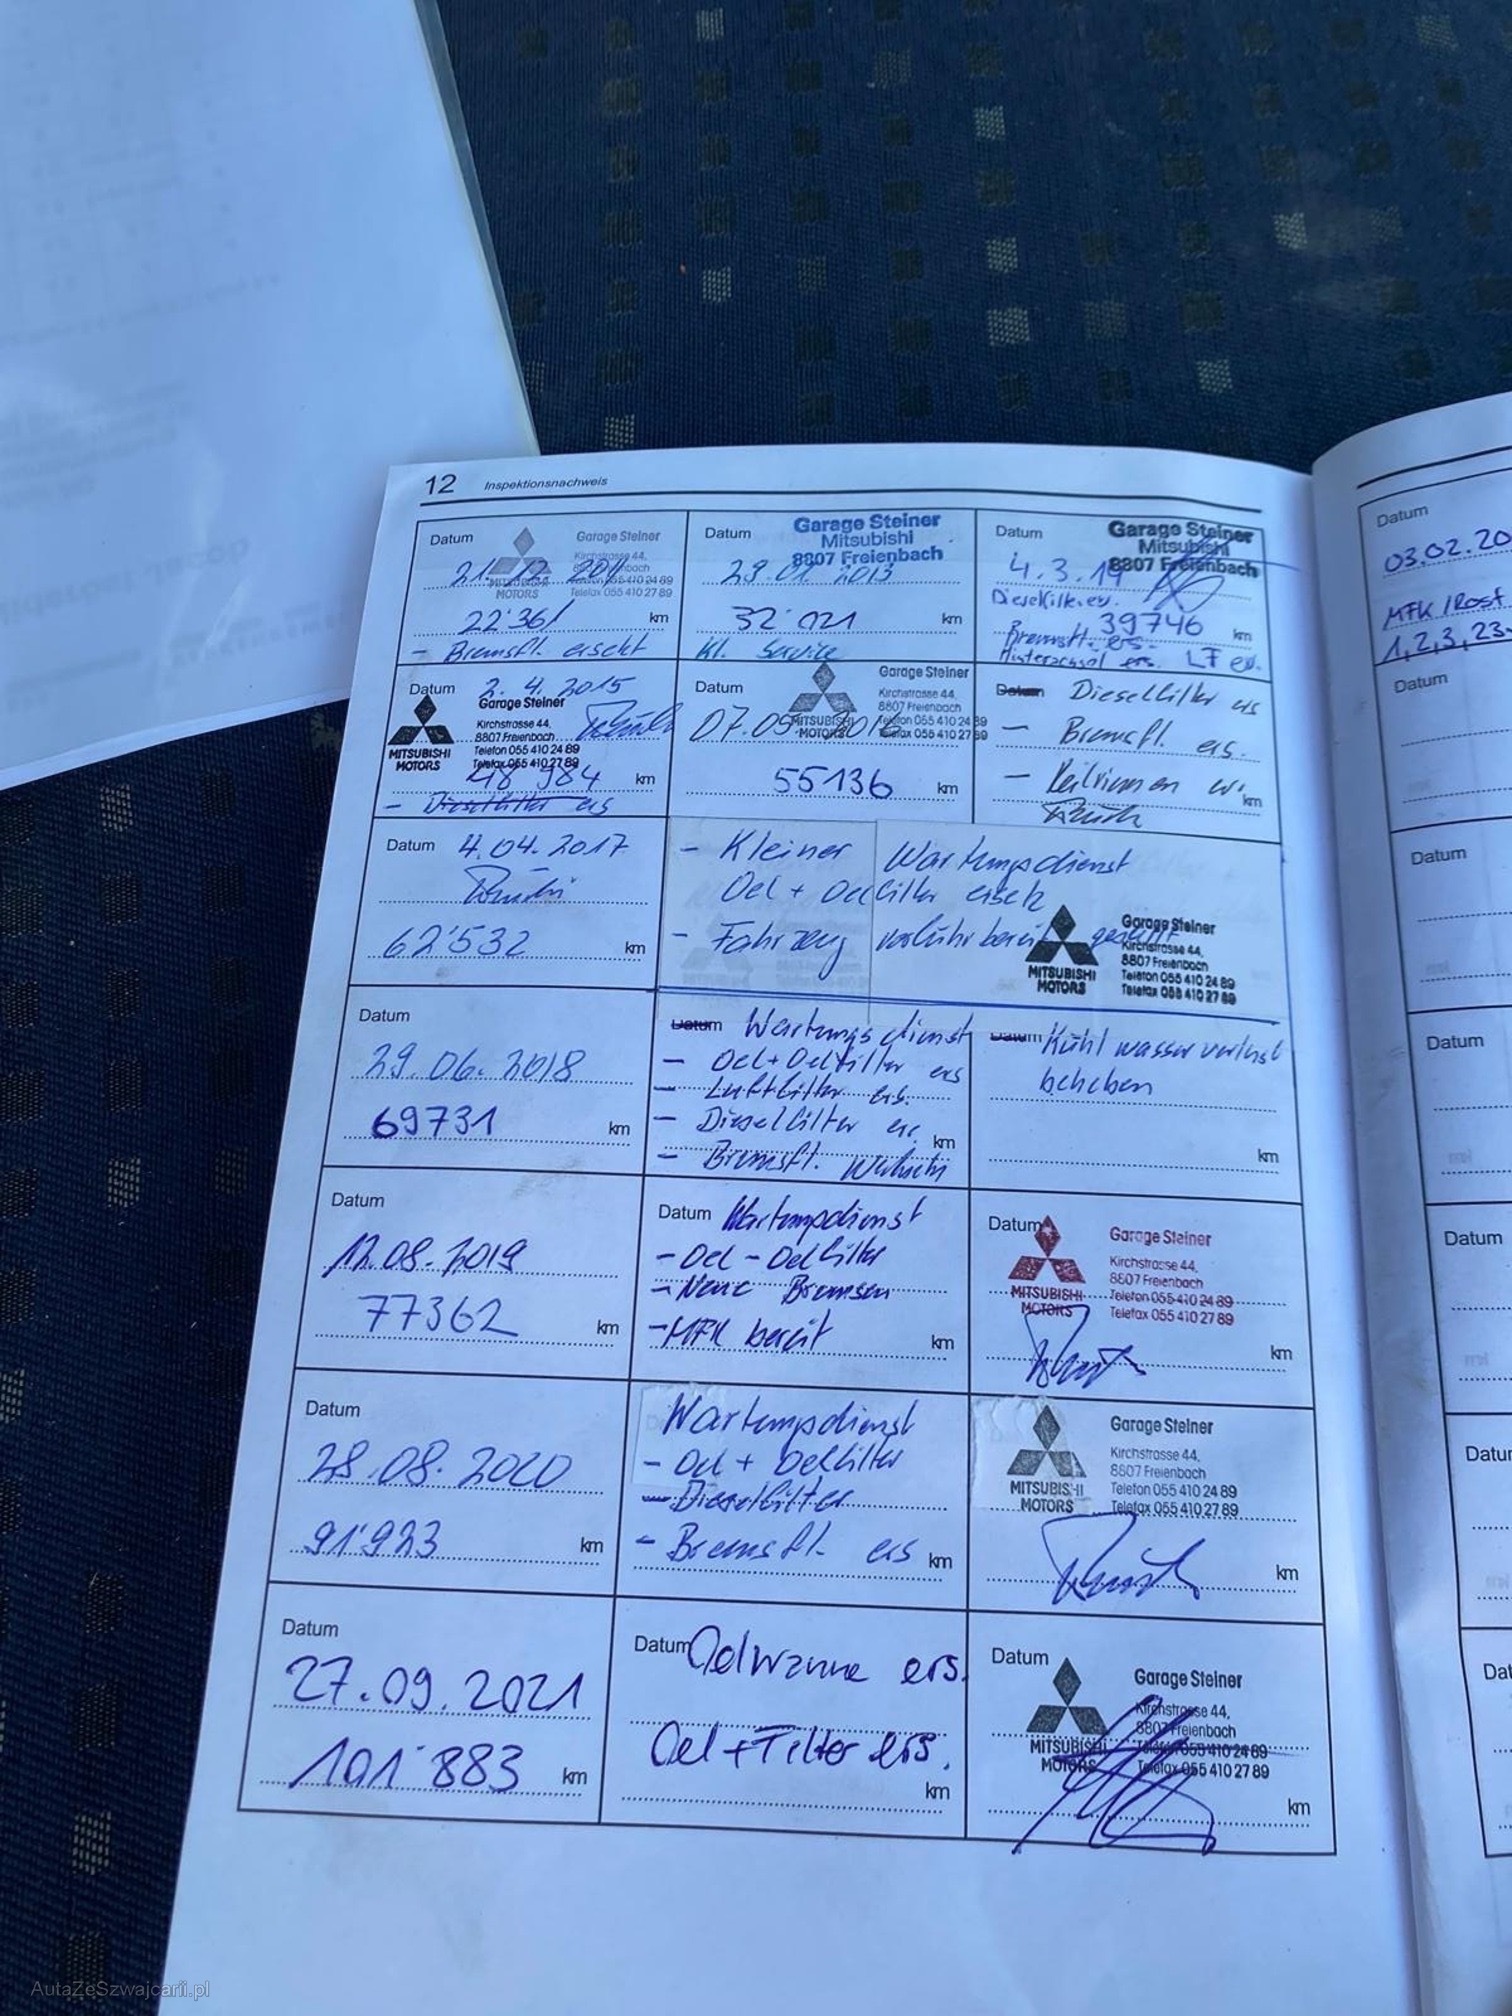 12 Inspektionsnachweis
Datum
Garage Steiner
Kirchstrasse 44,
8807 Freienbach
Telefon 055 410 24 89
Telefax 055 410 27 89
MITSUBISHI
MOTORS
km
- Bremsfl. ersetzt
Datum
Garage Steiner
Mitsubishi
8807 Freienbach
2013
32'021 km
Kl. Service
Datum
Garage Steiner
Mitsubishi
8807 Freienbach
4.3.14
Dieselfilt. ers.
39746 km
ers. LF ers.
Datum 2.4.2015
Garage Steiner
Kirchstrasse 44,
8807 Freienbach
Telefon 055 410 24 89
Telefax 055 410 27 89
MITSUBISHI
MOTORS
48'984 km
- Dieselfilter ers
Datum
Garage Steiner
Kirchstrasse 44,
8807 Freienbach
Telefon 055 410 24 89
Telefax 055 410 27 89
MITSUBISHI
MOTORS
55136 km
Datum Dieselfilter ers
- Bremsfl. ers.
- Keilriemen er.
km
Datum 4.04.2017
62'532 km
- Kleiner Wartungsdienst
Oel + Oelfilter ersetz
- Fahrzeug vorführbereit gestellt
MITSUBISHI
MOTORS
Garage Steiner
Kirchstrasse 44,
8807 Freienbach
Telefon 055 410 24 89
Telefax 055 410 27 89
Datum
29.06.2018
69731 km
Datum Wartungsdienst
- Oel + Oelfilter ers
- Luftfilter ers.
- Dieselfilter ers.
km
- Bremsfl. wechseln
Datum Kühlwasserverlust
beheben
km
Datum
12.08.2019
77362 km
Datum Wartungsdienst
- Oel - Oelfilter
- Neue Bremsen
- MFK bereit km
Datum
MITSUBISHI
MOTORS
Garage Steiner
Kirchstrasse 44,
8807 Freienbach
Telefon 055 410 24 89
Telefax 055 410 27 89
km
Datum
28.08.2020
91'923 km
Wartungsdienst
- Oel + Oelfilter
- Dieselfilter
- Bremsfl. ers km
MITSUBISHI
MOTORS
Garage Steiner
Kirchstrasse 44,
8807 Freienbach
Telefon 055 410 24 89
Telefax 055 410 27 89
km
Datum
27.09.2021
101'883 km
Datum Oelwanne ers.
Oel + Filter ers.
km
Datum
MITSUBISHI
MOTORS
Garage Steiner
Kirchstrasse 44,
8807 Freienbach
Telefon 055 410 24 89
Telefax 055 410 27 89
km
Datum
03.02.20
MFK /Rost
1,2,3,23
Datum
Datum
Datum
Datum
AutaZeSzwajcarii.pl